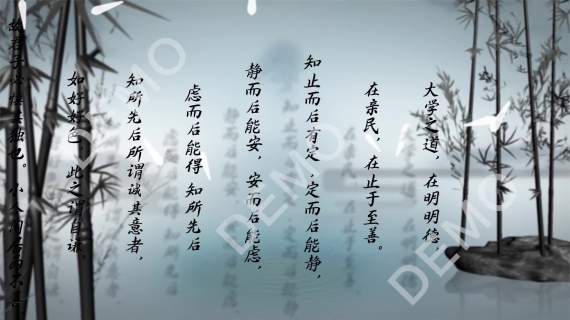 大学之道，在明明德，
在亲民，在止于至善。
知止而后有定，定而后能静，
静而后能安，安而后能虑，
虑而后能得 知所先后
知所先后所谓诚其意者，
如好好色 此之谓自谦，
故君子必慎其独也。小人闲居
DEMO
DEMO
DEMO
DEMO